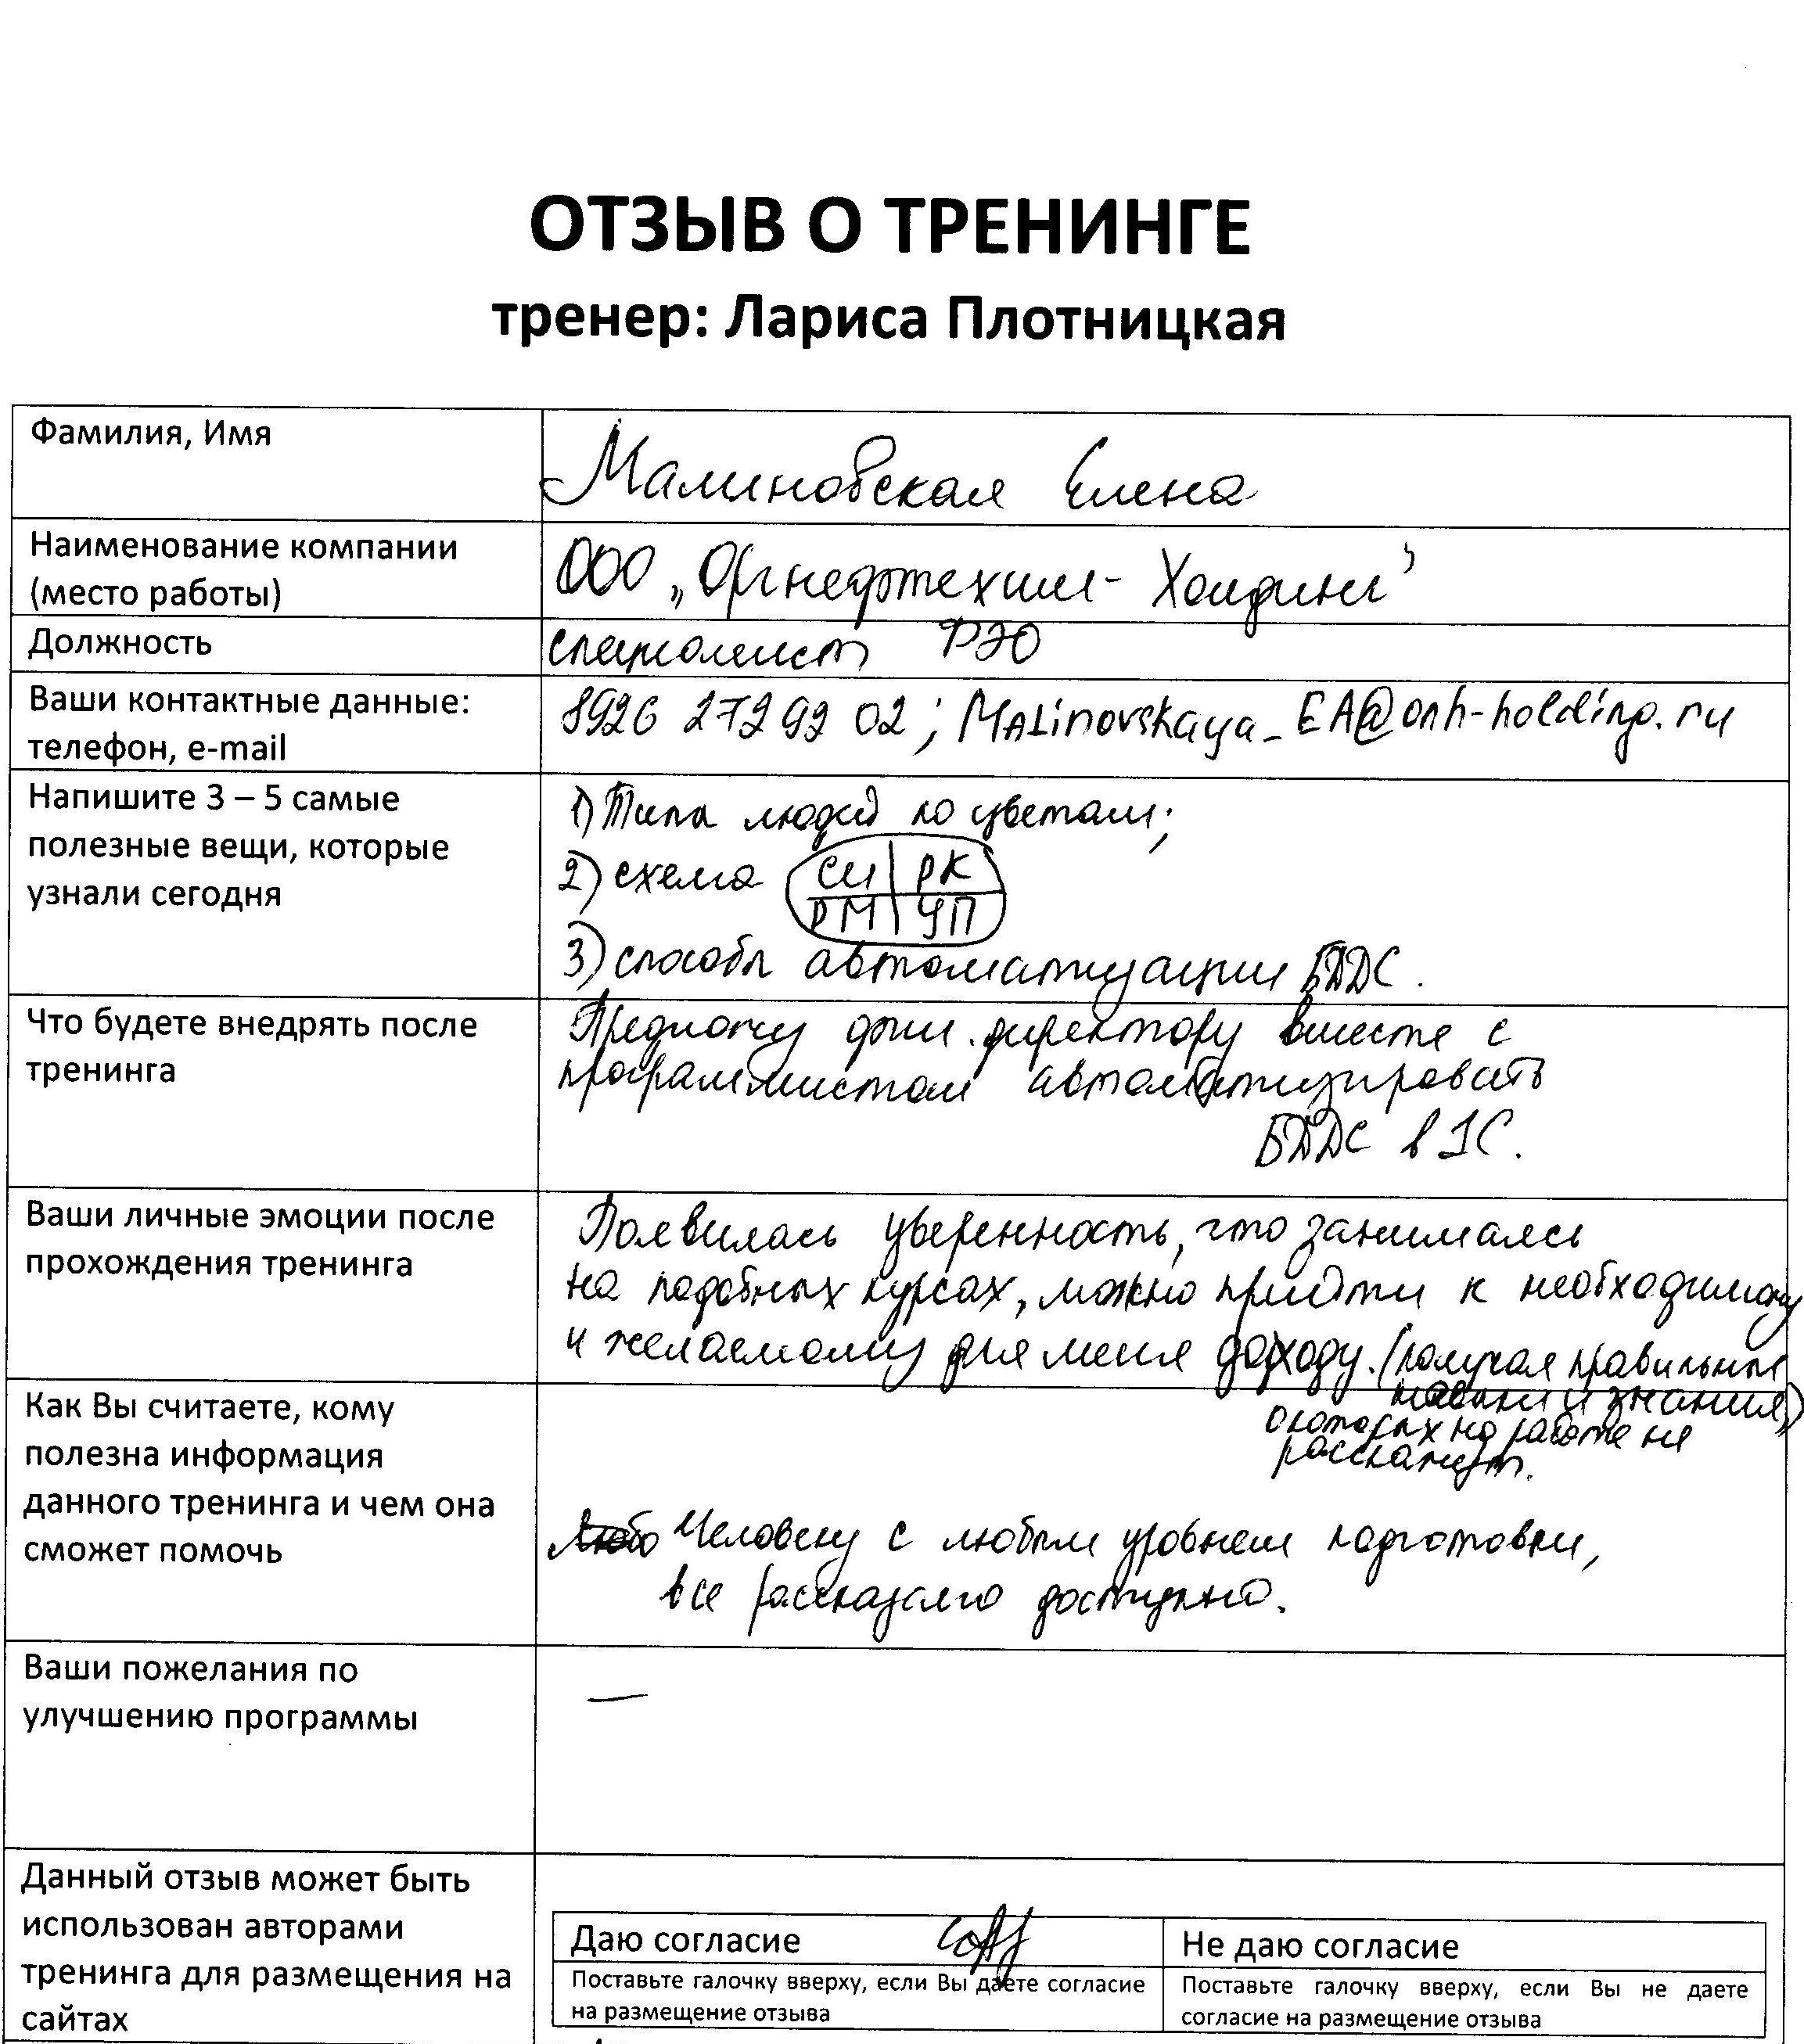 ОТЗЫВ О ТРЕНИНГЕ
тренер: Лариса Плотницкая
Фамилия, Имя
Малиновская Елена
Наименование компании
(место работы)
ООО „Оргнефтехим- Холдинг"
Должность
специалист ФЭО
Ваши контактные данные:
телефон, e-mail
8926 272 92 02; MALinovskaya_EA@onh-holding.ru
Напишите 3 – 5 самые
полезные вещи, которые
узнали сегодня
1) Типы людей по цветам;
2) схема СИ РК
РМ УП
3) способы автоматизации БДДС.
Что будете внедрять после
тренинга
Предложу фин. директору вместе с
программистом автоматизировать
БДДС в 1С.
Ваши личные эмоции после
прохождения тренинга
Появилась уверенность, что занимаясь
на подобных курсах, можно прийти к необходимому
и желаемому для меня доходу. (получая правильные
навыки и знания,)
о которых на работе не
расскажут.
Как Вы считаете, кому
полезна информация
данного тренинга и чем она
сможет помочь
Человеку с любым уровнем подготовки,
все рассказано доступно.
Ваши пожелания по
улучшению программы
—
Данный отзыв может быть
использован авторами
тренинга для размещения на
сайтах
Даю согласие
Поставьте галочку вверху, если Вы даете согласие
на размещение отзыва
Не даю согласие
Поставьте галочку вверху, если Вы не даете
согласие на размещение отзыва